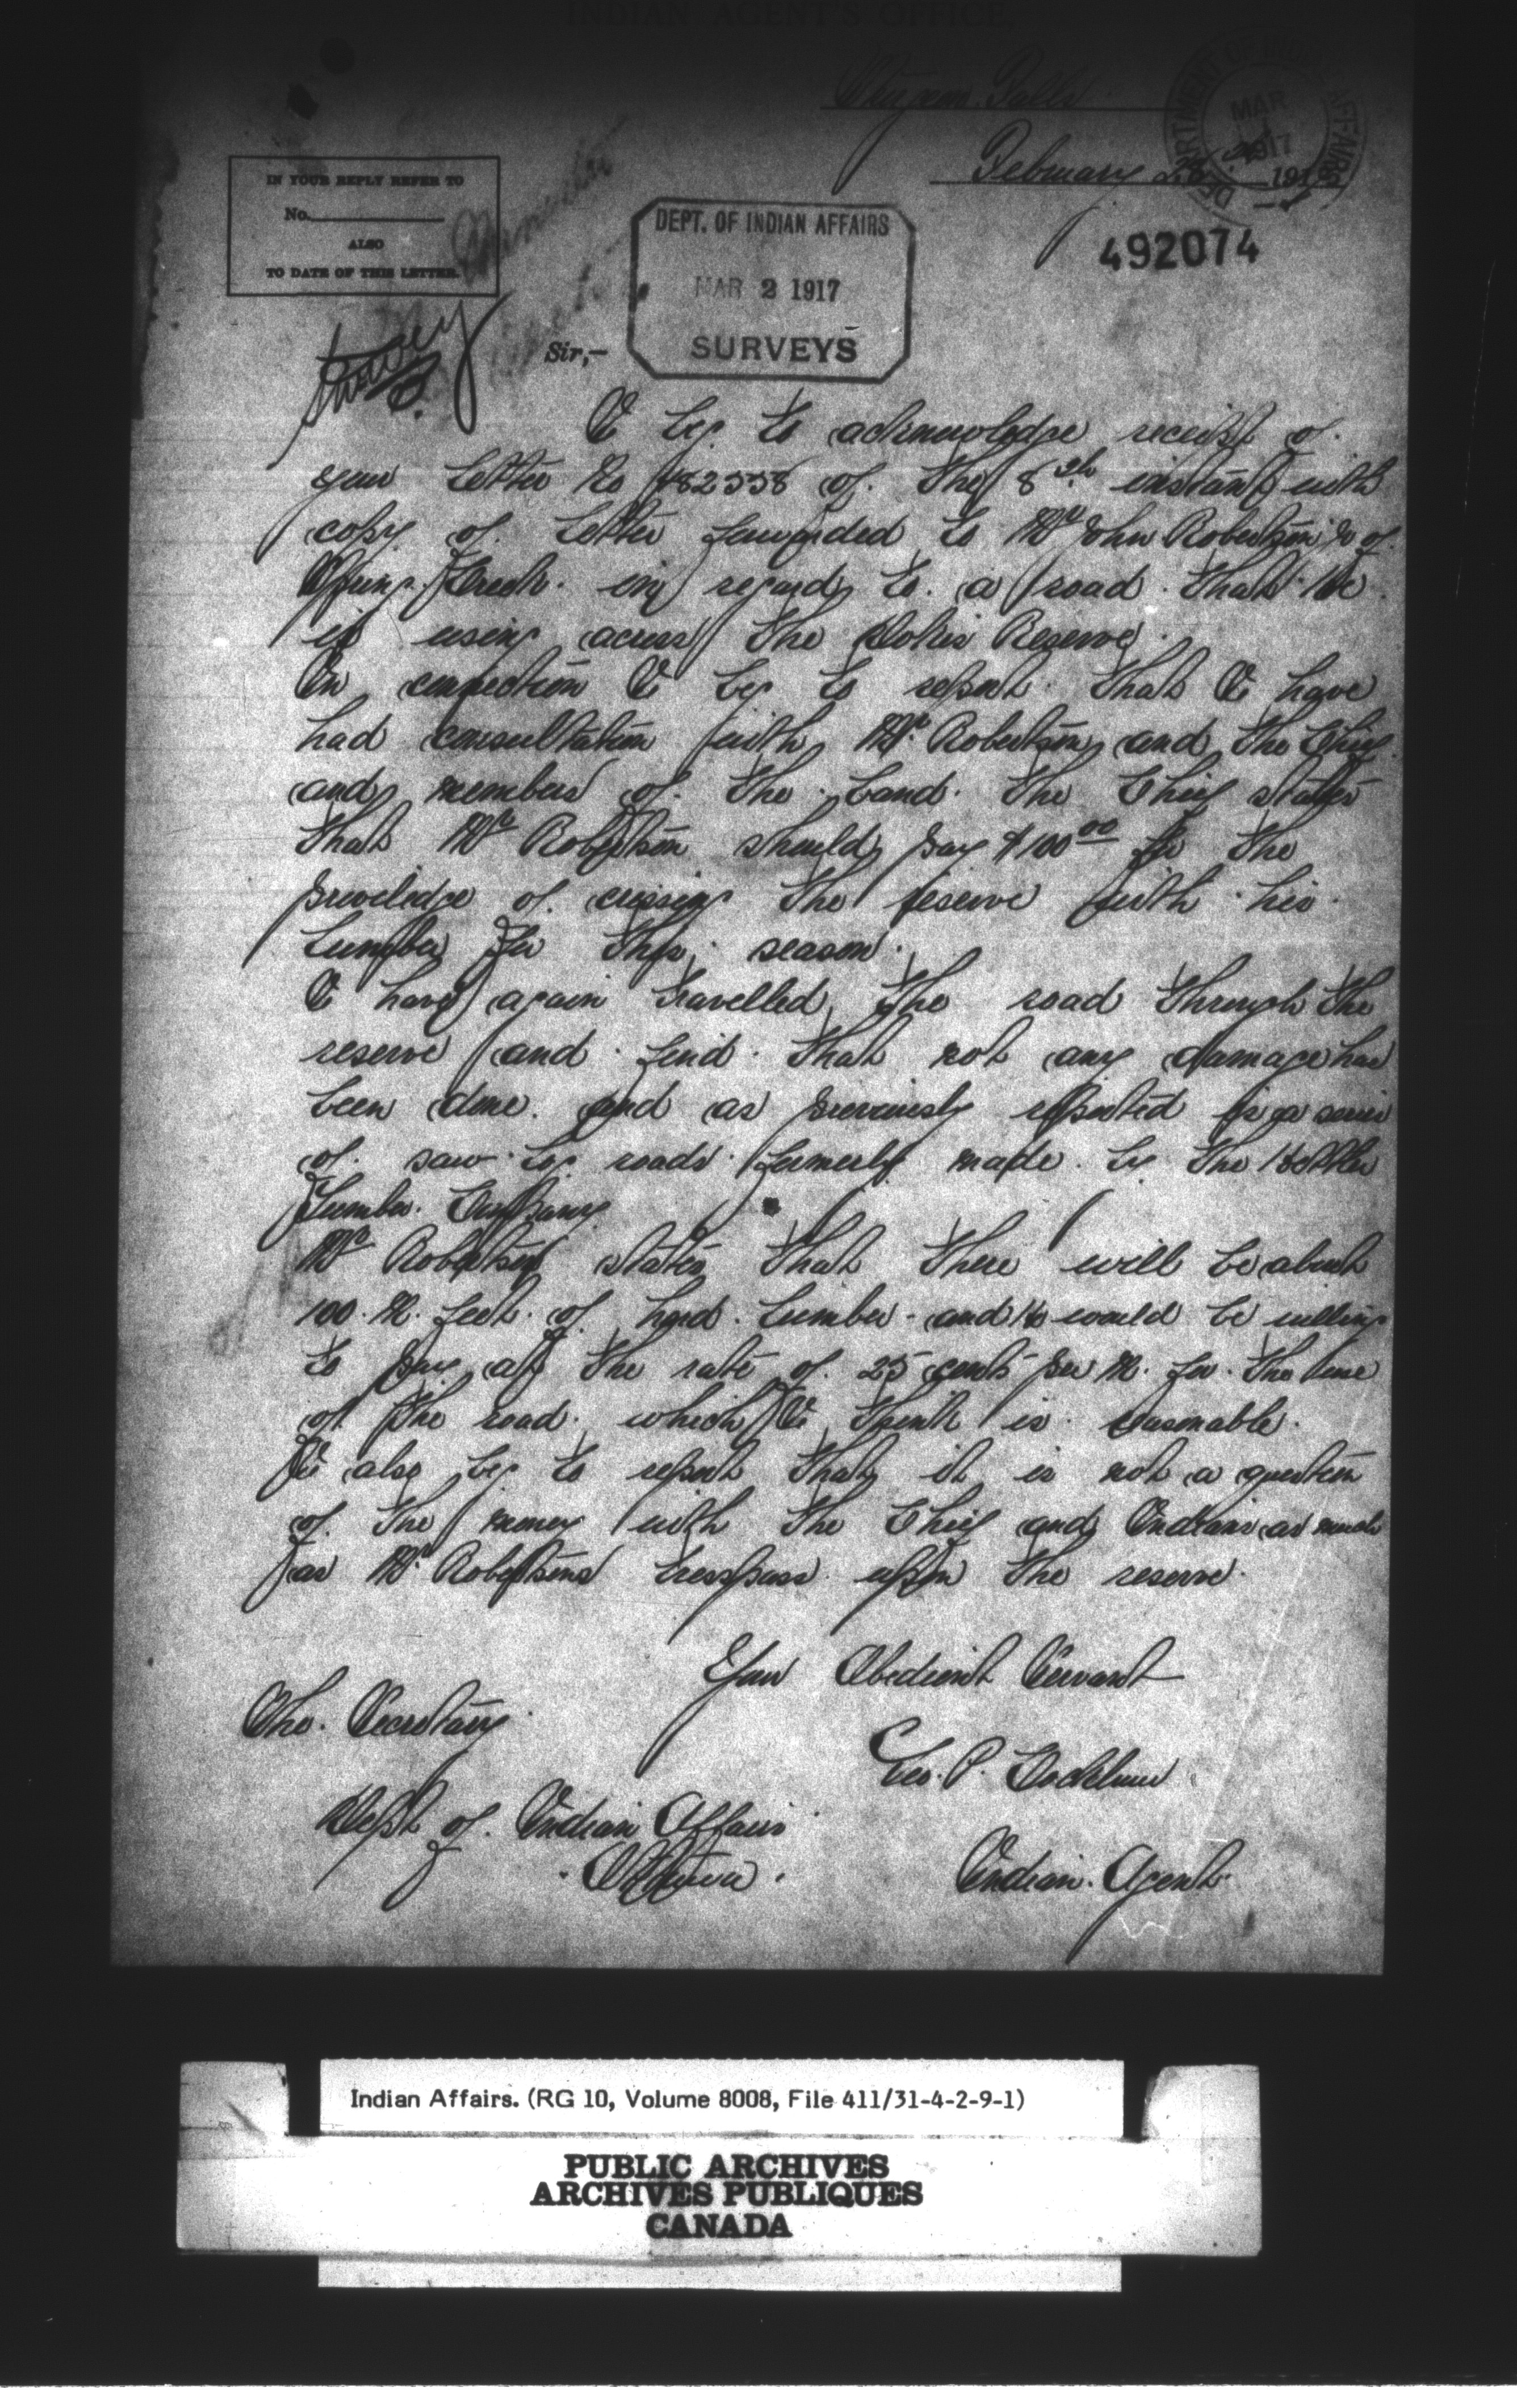 INDIAN AGENT'S OFFICE,
Sturgeon Falls
February 26th 1917
DEPARTMENT OF INDIAN AFFAIRS
MAR
1917
IN YOUR REPLY REFER TO
No.
ALSO
TO DATE OF THIS LETTER.
DEPT. OF INDIAN AFFAIRS
MAR 2 1917
SURVEYS
492074
Sir,—
I beg to acknowledge receipt of
your letter No 482338 of the 8th instant with
copy of letter forwarded to Mr John Robertson Jr of
Spring Creek in regard to a road that he
is using across the Dokis Reserve.
In connection I beg to report that I have
had consultation with Mr Robertson and the Chief
and members of the band. The Chief states
that Mr Robertson should pay $100 00 for the
priveledge of crossing the reserve with his
lumber for this season.
I have again travelled the road through the
reserve and find that not any damage has
been done. and as previously reported is a series
of saw log roads formerly made by the
Lumber Company
Mr Robertson states that there will be about
100. M. feet of hard lumber and he would be willing
to pay at the rate of 25 cents per M. for the use
of the road which I think is reasonable.
I also beg to report that it is not a question
of the money with the Chief and Indians as much
as Mr Robertsons tresspass upon the reserve.
Your Obedient Servant
The Secretary
Geo. P. Cockburn
Dept of Indian Affairs
Ottawa.
Indian Agent
Indian Affairs. (RG 10, Volume 8008, File 411/31-4-2-9-1)
PUBLIC ARCHIVES
ARCHIVES PUBLIQUES
CANADA